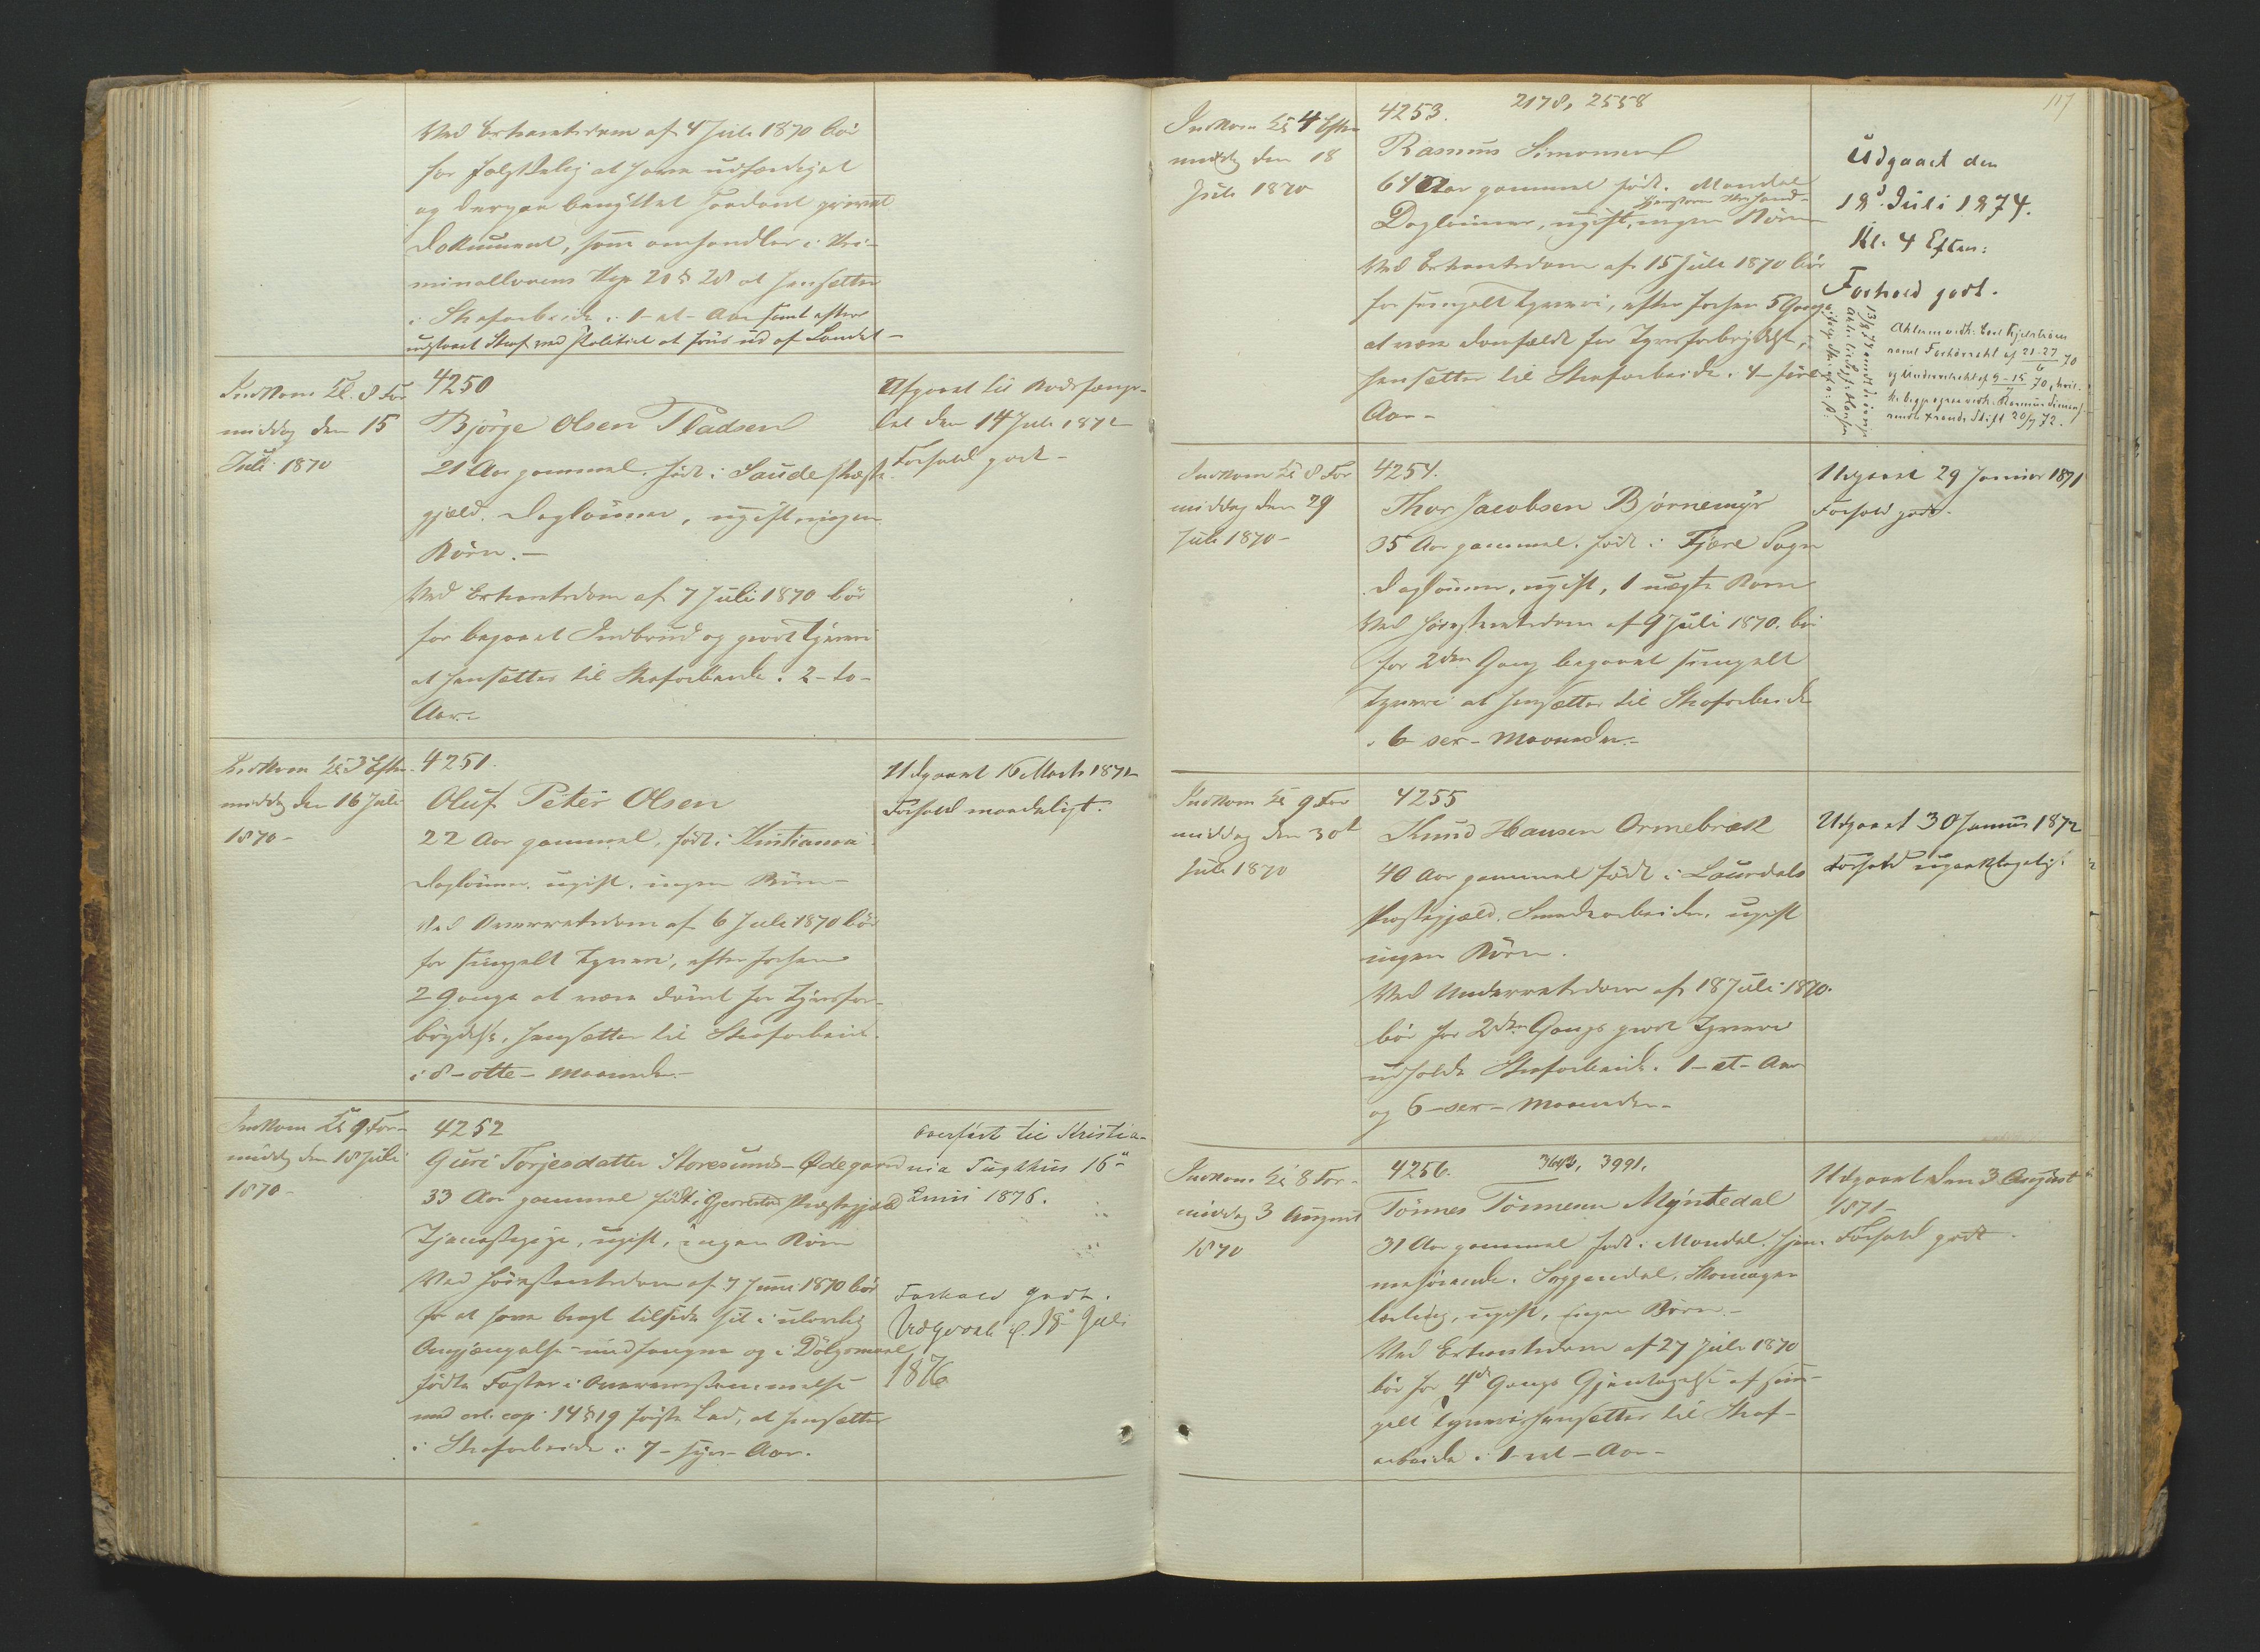 Ved Extraretsdom af 4 Juli 1870 bör
for falskelig at have udfærdiget
og derpaa benyttet saadant privat
Dokument, som omhandler i Kri-
minallovens Kap 20 § 28 at hensættes
i Strafarbeide i 1-et- Aar samt efter
udstaaet Straf ved Politiet at föres ud af Landet-
Indkom Kl. 8 For
middag den 15
Juli 1870
4250
Björge Olsen Pladsen
21 Aar gammel. födt i Saude Præste-
gjæld. Daglönner, ugift, ingen
Börn.-
Ved Extraretsdom af 7 Juli 1870 bör
for begaaet Indbrud og groft Tyveri
at hensættes til Strafarbeide i 2-to-
Aar.-
Afgaaet til Bodsfængs-
let den 14 Juli 1871
Forhold godt-
Indkom Kl 3 Efter-
middag den 16 Juli
1870-
4251.
Oluf Peter Olsen
22 Aar gammel, födt i Kristiania
Daglönner, ugift, ingen Börn-
Ved Overretsdom af 6 Juli 1870 bör
for simpelt Tyveri, efter forhen
2 Gange at være dömt for Tyvsfor-
brydelse, hensættes til Strafarbeide
i 8-otte- Maaneder.-
Udgaaet 16 Marts 1871
Forhold maadeligt.
Indkom Kl 9 For-
middag den 18 Juli
1870-
4252
Guri Torjesdatter Storesunds-Ødegaard
33 Aar gammel födt i Gjerrestad Præstegjæld
Tjenestepige, ugift, ingen Börn
Ved Höiesteretsdom af 7 Juni 1870 bör
for at have bragt tilside sit i ulovlig
Omgjængelse undfangne og i Dölgsmaal
födte Foster i Overensstemmelse
med crl. cap. 14 § 19 förste Led, at hensættes
i Strafarbeide i 7-syv- Aar.
Overfört til Kristia-
nia Tugthus 16de
Juni 1876.
Forhold godt.
Udgaaet d. 18 Juli
1876
117
Indkom Kl 4 Efter
middag den 18
Juli 1870
4253. 2178, 2558
Rasmus Simonsen
64 Aar gammel födt i Mandal
Daglönner, ugift, ingen Börn
Ved Extraretsdom af 15 Juli 1870 bör
for simpelt Tyveri, efter forhen 5 Gange
at være domfældt for Tyvsforbrydelse,
hensættes til Strafarbeide i 4-fire-
Aar-
Udgaaet den
18d. Juli 1874.
Kl. 4 Efterm:
Forhold godt.
Indkom Kl 8 For
middag den 29
Juli 1870-
4254.
Thor Jacobsen Björnemyr
35 Aar gammel. födt i Fjære Sogn
Daglönner, ugift, 1 uægte Barn
Ved Höiesteretsdom af 9 Juli 1870. bör
for 2den Gang begaaet simpelt
Tyveri at hensættes til Strafarbeide
i 6 sex- Maaneder.-
Udgaaet 29 Januar 1871
Forhold godt.
Indkom Kl 9 For
middag den 30t
Juli 1870
4255
Knud Hansen Ormebræk
40 Aar gammel födt i Laurdals
Præstegjæld. Smedarbeider. ugift
ingen Börn.
Ved Underretsdom af 18 Juli 1870.
bör for 2den Gangs groft Tyveri
udholde Strafarbeide i 1-et- Aar
og 6-sex- Maaneder-
Udgaaet 30 Januar 1872
Forhold upaaklageligt.
Indkom Kl 8 For-
middag 3 August
1870
4256. 3643, 3991.
Tönnes Tönnesen Myntedal
31 Aar gammel födt i Mandal. hjem-
mehörende i Soggendal. Skomager
lærling, ugift, ingen Börn.-
Ved Extraretsdom af 27 Juli 1870
bör for 4de Gangs Gjentagelse af sim-
pelt Tyveri hensættes til Straf-
arbeide i 1-et-Aar-
Udgaaet den 3 August
1871-
Forhold godt.